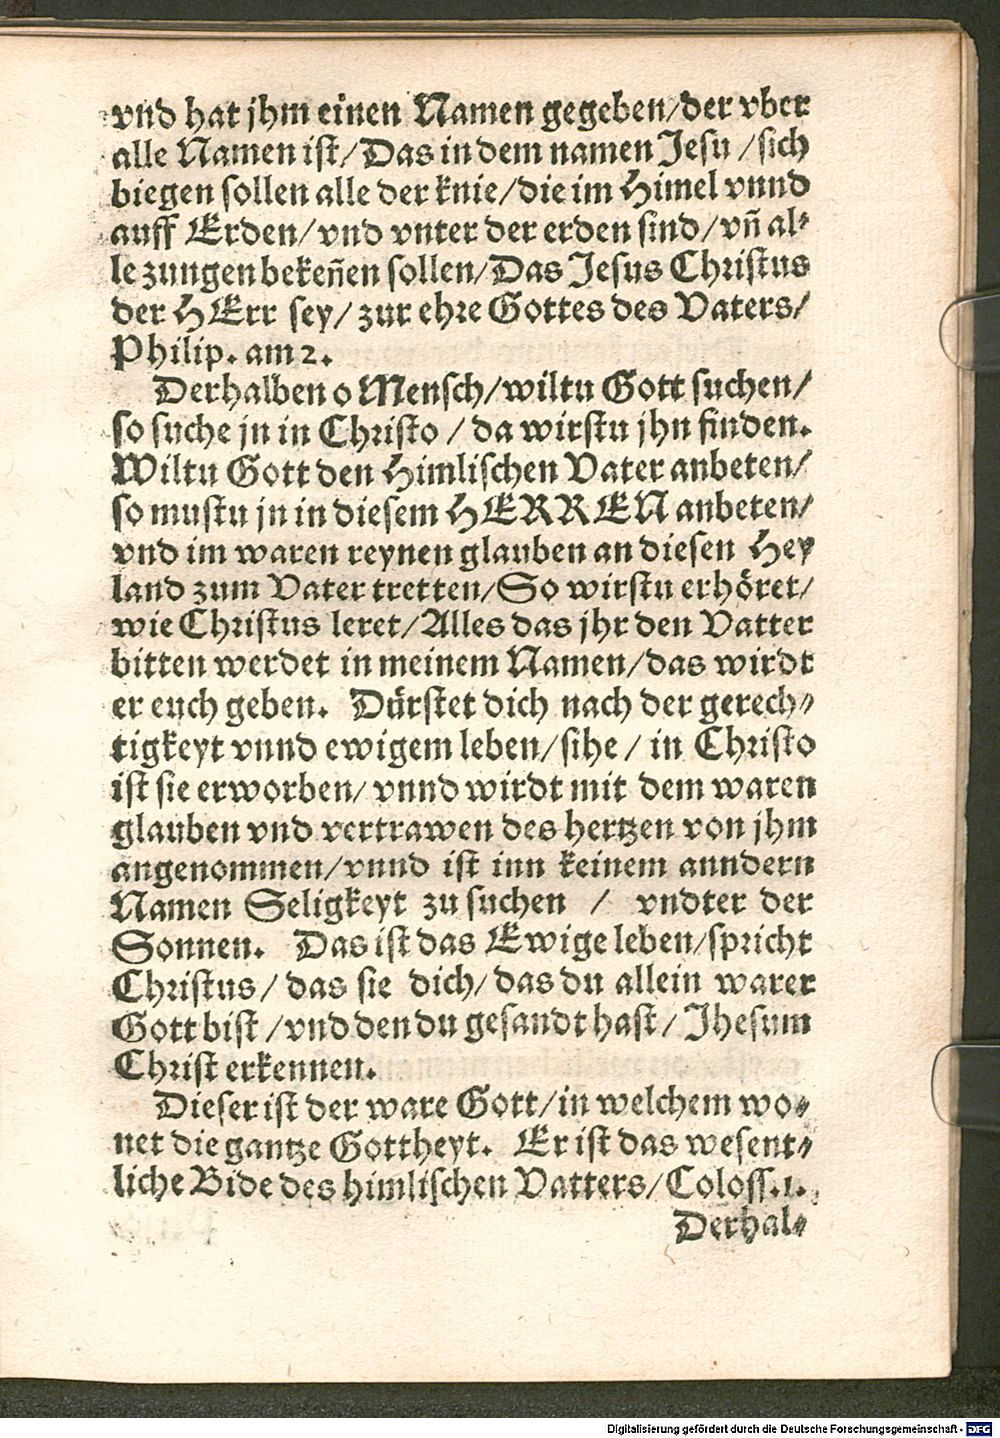 vnd hat jhm einen Namen gegeben/der vber
alle Namen ist/Das in dem namen Jesu/sich
biegen sollen alle der knie/die im Himel vnnd
auff Erden/vnd vnter der erden sind/vñ al⸗
le zungen bekeñen sollen/Das Jesus Christus
der HErr sey/zur ehre Gottes des Vaters/
Philip. am 2.
Derhalben o Mensch/wiltu Gott suchen/
so suche jn in Christo/da wirstu jhn finden.
Wiltu Gott den Himlischen Vater anbeten/
so mustu jn in diesem HERREN anbeten/
vnd im waren reynen glauben an diesen Hey
land zum Vater tretten/So wirstu erhöret/
wie Christus leret/Alles das jhr den Vatter
bitten werdet in meinem Namen/das wirdt
er euch geben. Dürstet dich nach der gerech⸗
tigkeyt vnnd ewigem leben/sihe/in Christo
ist sie erworben/vnnd wirdt mit dem waren
glauben vnd vertrawen des hertzen von jhm
angenommen/vnnd ist inn keinem anndern
Namen Seligkeyt zu suchen / vndter der
Sonnen. Das ist das Ewige leben/spricht
Christus/das sie dich/das du allein warer
Gott bist/vnd den du gesandt hast/Jhesum
Christ erkennen.
Dieser ist der ware Gott/in welchem wo⸗
net die gantze Gottheyt. Er ist das wesent⸗
liche Bide des himlischen Vatters/Coloss.1.
Derhal⸗
Digitalisierung gefördert durch die Deutsche Forschungsgemeinschaft - DFG